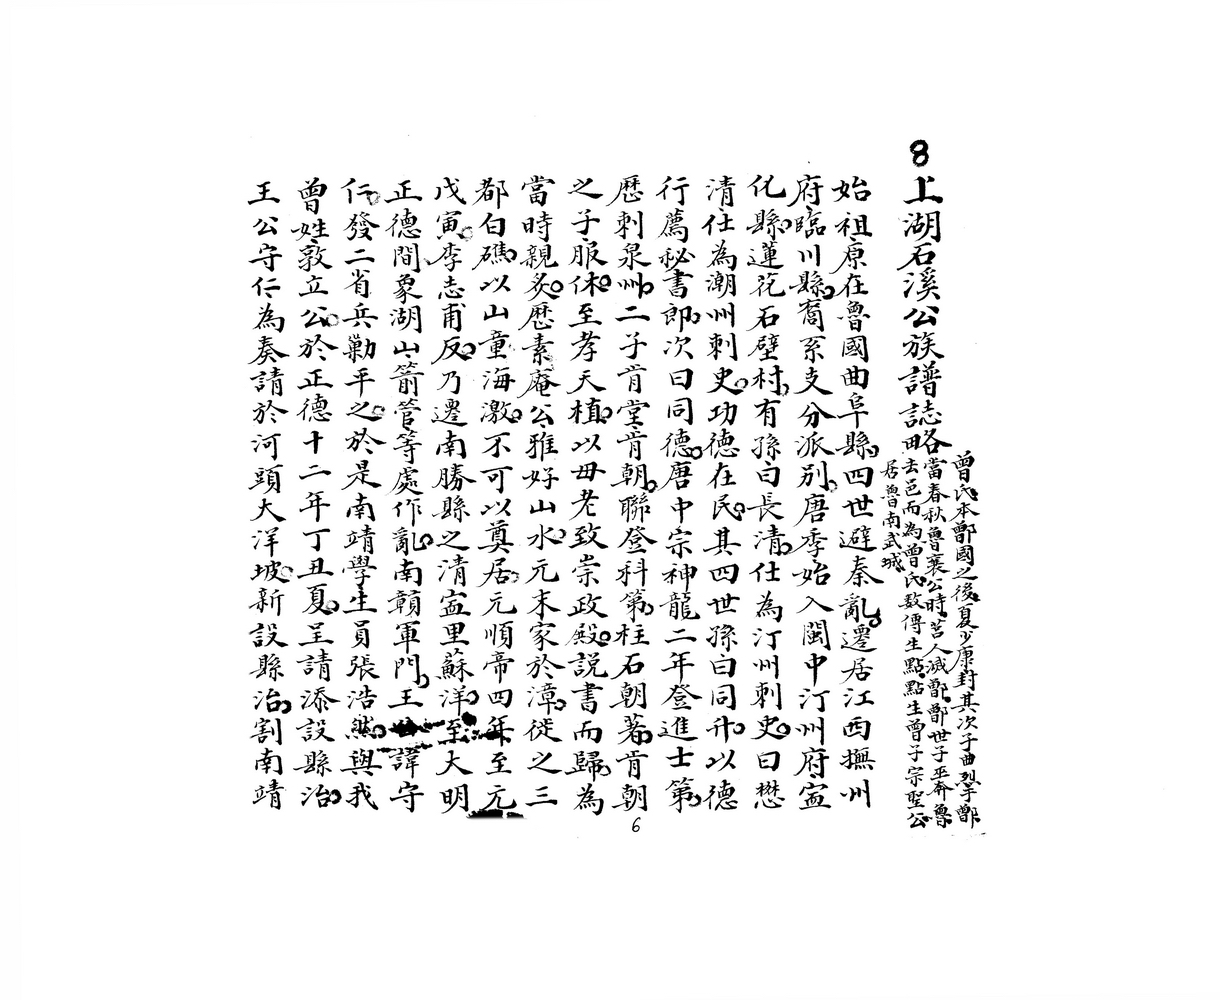 8
上湖石溪公族譜誌略
曾氏本鄫國之後夏少康封其次子曲烈于鄫
當春秋魯襄公時莒人滅鄫鄫世子巫奔魯
去邑而為曾氏数傳生點點生曾子宗聖公
居魯南武城
始祖原在魯國曲阜縣四世避秦亂遷居江西撫州
府臨川縣裔系支分派別唐季始入閩中汀州府寍
化縣蓮花石壁村有孫曰長清仕為汀州刺史曰懋
清仕為潮州刺史功德在民其四世孫曰同升以德
行薦秘書郎次曰同德唐中宗神龍二年登進士第
歷刺泉州二子肯堂肯朝聯登科第柱石朝著肯朝
之子服休至孝天植以毋老致崇政殿説書而歸為
當時親炙歷素庵公雅好山水元末家於漳徙之三
都白礁以山童海激不可以奠居元順帝四年至元
戊寅李志甫反乃遷南勝縣之清寍里蘇洋至大明
正德間象湖山箭管等處作亂南贑軍門王諱守
仁發二省兵勦平之於是南靖學生員張浩然與我
曾姓敦立公於正德十二年丁丑夏呈請添設縣治
王公守仁為奏請於河頭大洋坡新設縣治割南靖
6